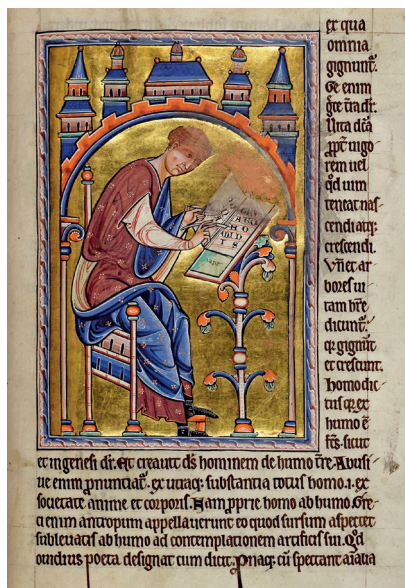 ex qua
omnia
gignunt̄.
Ge enim
ḡce t̄ra dr̄.
Uita dc̄a
ꝓpt̄ uigo
rem uel
qd̄ uim
teneat nas
cendi atq;
crescendi.
Vn̄ et ar
bores ui
tam hr̄e
dicunt̄.
qꝛ gignūt̄
et crescunt.
Homo dic
tus qꝛ ex
humo ē
fc̄s. sicut
et in genesi dr̄. Et creauit ds̄ hominem de humo tr̄e. Abusi
ue enim pronūtiat̄. ex utraq; substantia totus homo. i. ex
societate anime et corporis. Nam ꝓprie homo ab humo. Gre
ci enim antropum appellauerunt eo quod sursum aspectet
subleuatus ab humo ad contemplationem artificis sui. Qd̄
ouidius poeta designat cum dicit. Pnaq; cū spectant aīalia